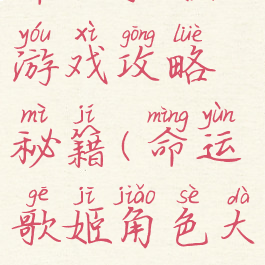 yóu xì gōng lüè
游戏攻略
mì jí mìng yùn
秘籍(命运
gē jī jiǎo sè dà
歌姬角色大